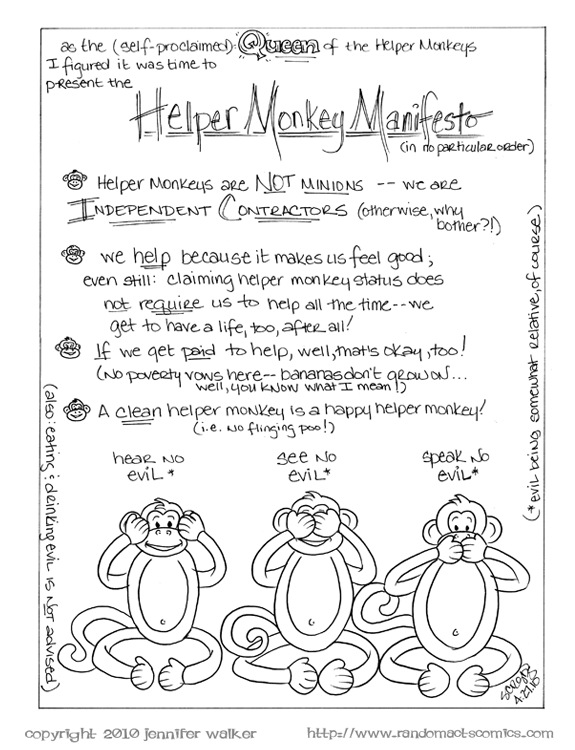 as the (self-proclaimed): Queen of the Helper Monkeys
I figured it was time to
present the
Helper Monkey Manifesto
(in no particular order)
Helper Monkeys are NOT MINIONS -- we are
INDEPENDENT CONTRACTORS (otherwise, why
bother?!)
we help because it makes us feel good;
even still: claiming helper monkey status does
not require us to help all the time -- we
get to have a life, too, after all!
If we get paid to help, well, that's okay, too!
(No poverty vows here -- bananas don't grow on...
well, you know what I mean!)
A clean helper monkey is a happy helper monkey!
(i.e. no flinging poo!)
hear no
evil*
see no
evil*
speak no
evil*
(also: eating & drinking evil is Not advised)
(*evil being somewhat relative, of course)
4.27.10
copyright 2010 jennifer walker
http://www.randomactscomics.com